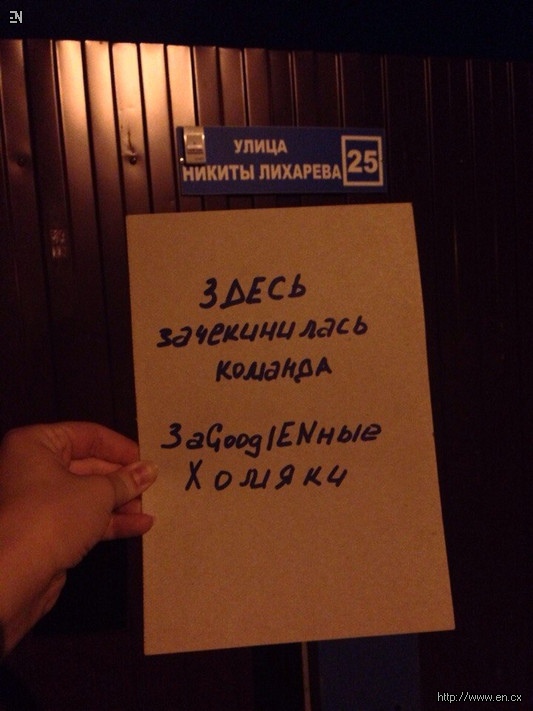 EN
УЛИЦА
НИКИТЫ ЛИХАРЕВА
25
ЗДЕСЬ
зачекинилась
команда
ЗаGooglENные
Хомяки
http://www.en.cx